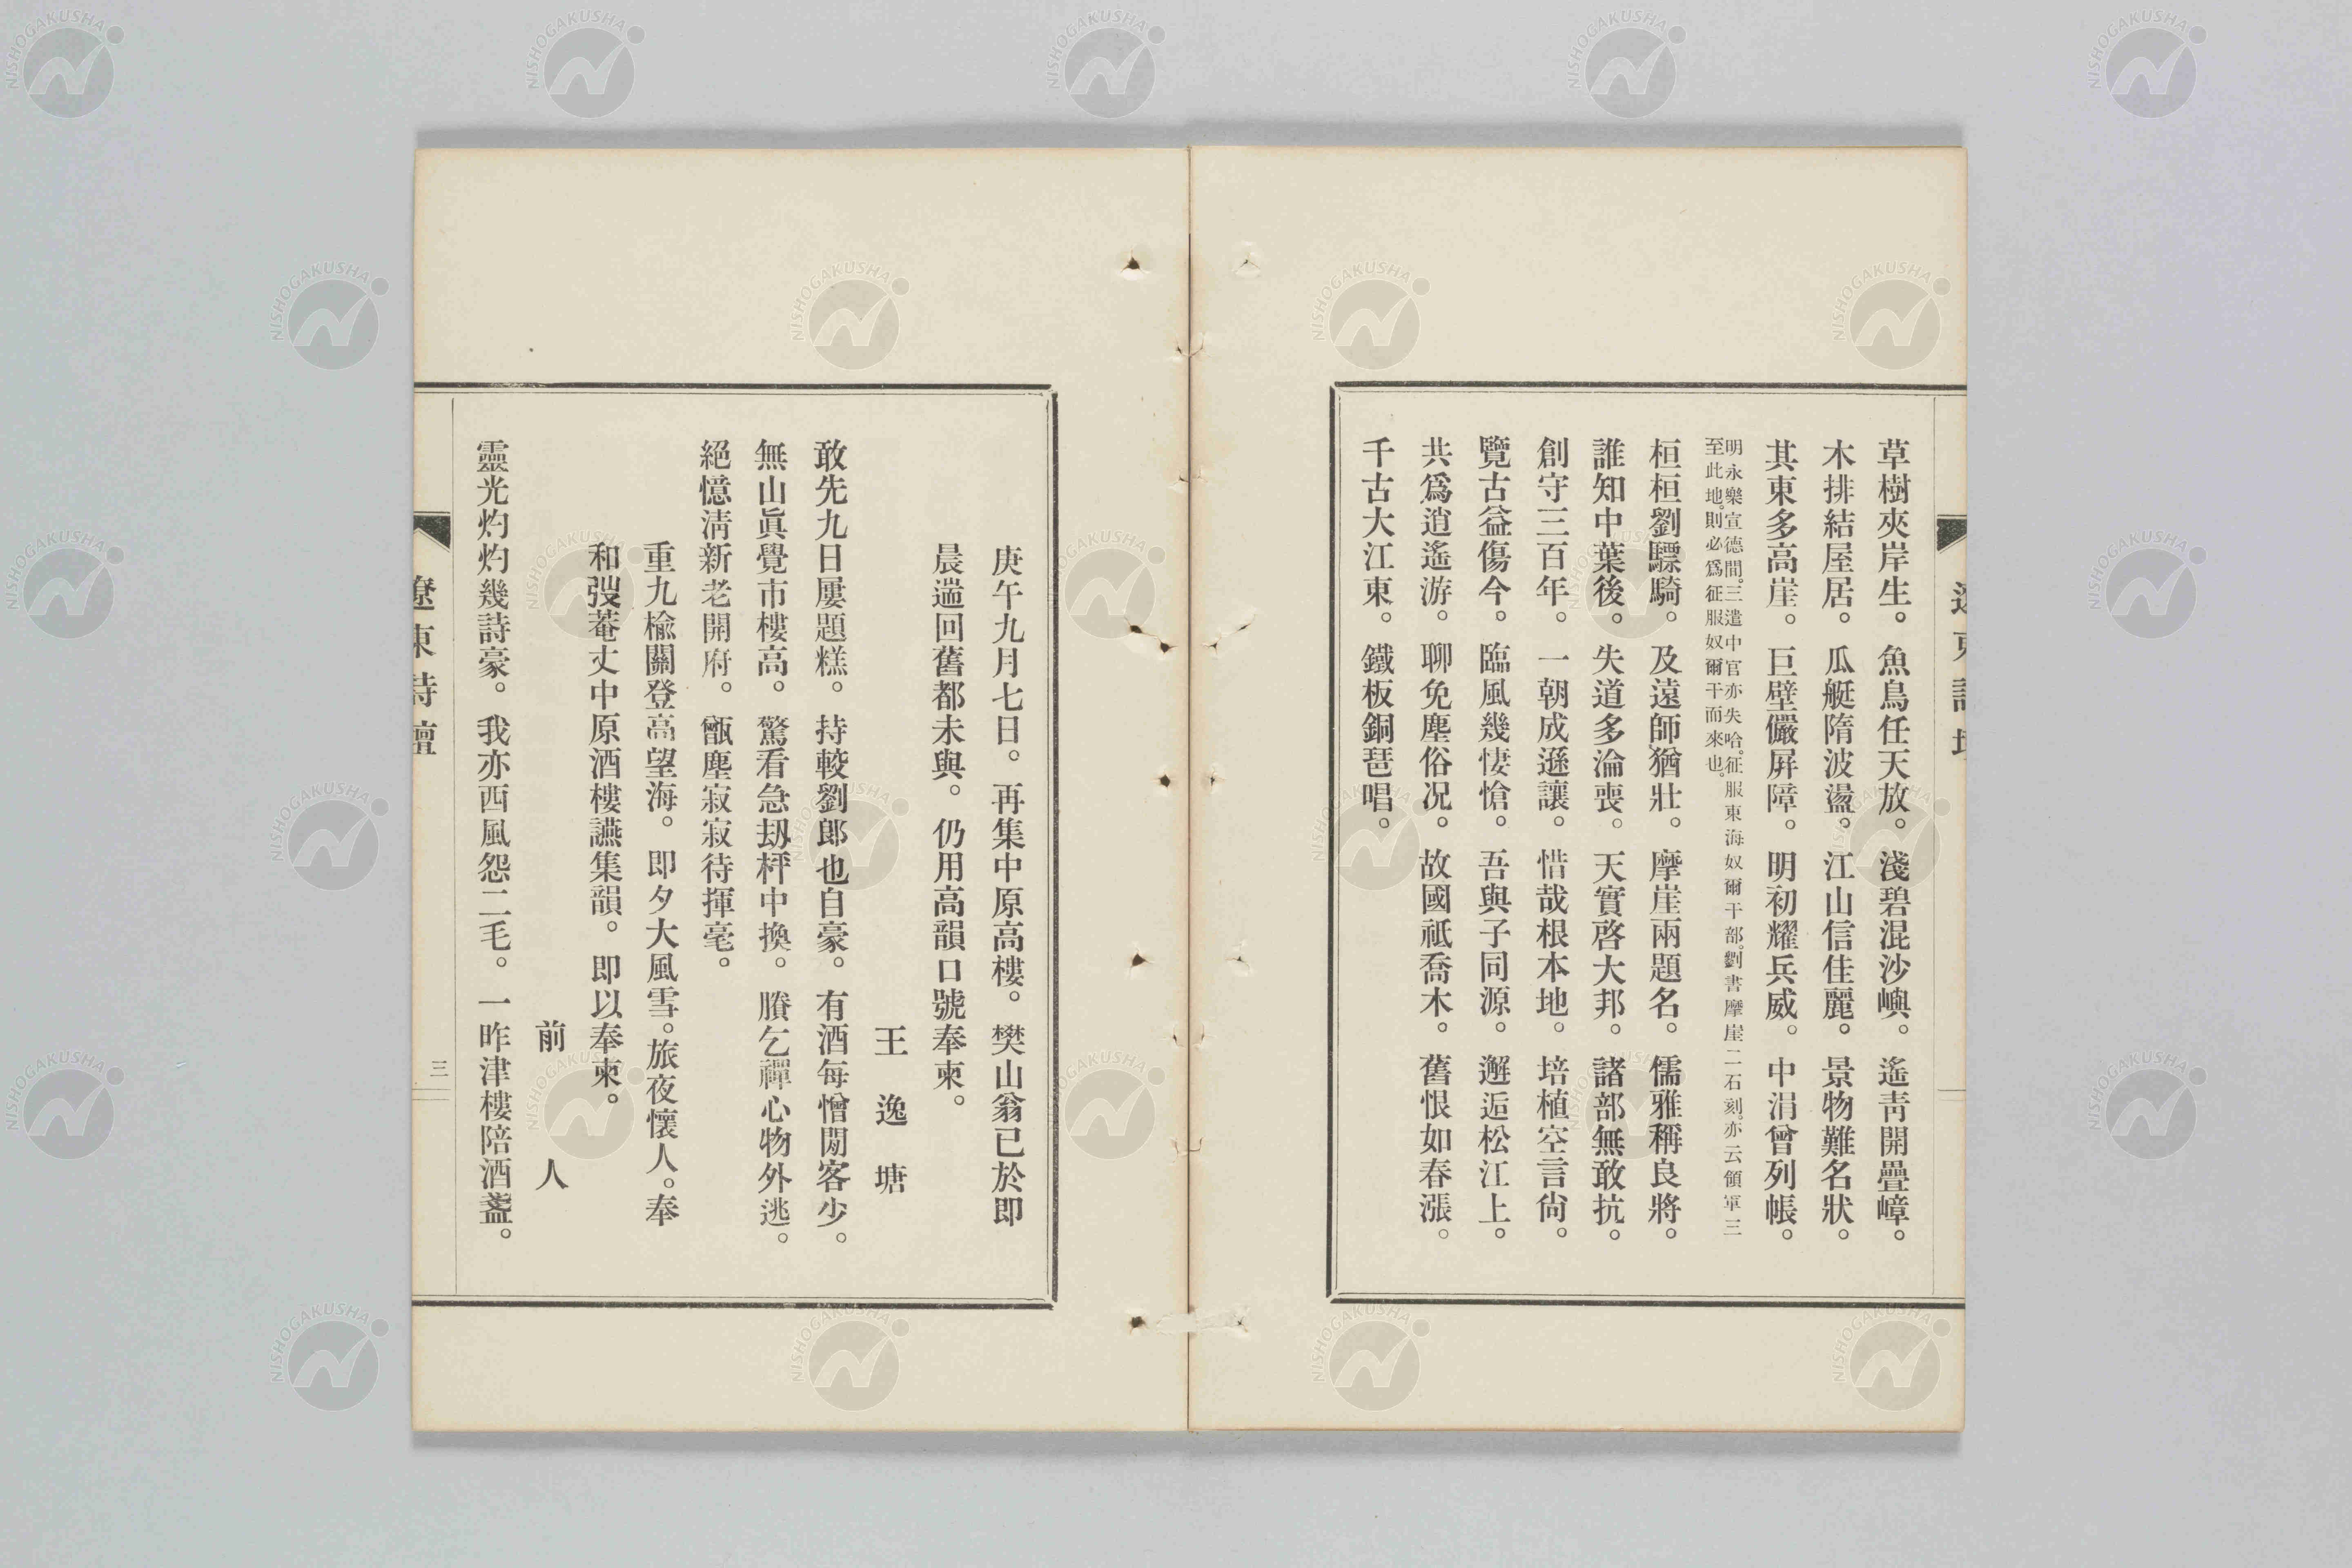 草樹夾岸生。魚鳥任天放。淺碧混沙嶼。遙靑開疊嶂。
木排結屋居。瓜艇隋波盪。江山信佳麗。景物難名狀。
其東多高崖。巨壁儼屏障。明初耀兵威。中涓曾列帳。
明永樂宣德間。三遣中官亦失哈。征服東海奴爾干部。劉書摩崖二石刻。亦云領軍三
至此地。則必爲征服奴爾干而來也。
桓桓劉驃騎。及遠師猶壯。摩崖兩題名。儒雅稱良將。
誰知中葉後。失道多淪喪。天實啓大邦。諸部無敢抗。
創守三百年。一朝成遜讓。惜哉根本地。培植空言尙。
覽古益傷今。臨風幾悽愴。吾與子同源。邂逅松江上。
共爲逍遙游。聊免塵俗況。故國祗喬木。舊恨如春漲。
千古大江東。鐵板銅琶唱。
庚午九月七日。再集中原高樓。樊山翁已於即
晨遄回舊都未與。仍用高韻口號奉柬。
王逸塘
敢先九日屢題糕。持較劉郎也自豪。有酒每憎閒客少。
無山眞覺市樓高。驚看急刼枰中換。賸乞禪心物外逃。
絕憶淸新老開府。甑塵寂寂待揮毫。
重九楡關登高望海。即夕大風雪。旅夜懷人。奉
和弢菴丈中原酒樓讌集韻。即以奉柬。
前人
靈光灼灼幾詩豪。我亦西風怨二毛。一昨津樓陪酒盞。
遼東詩壇
三